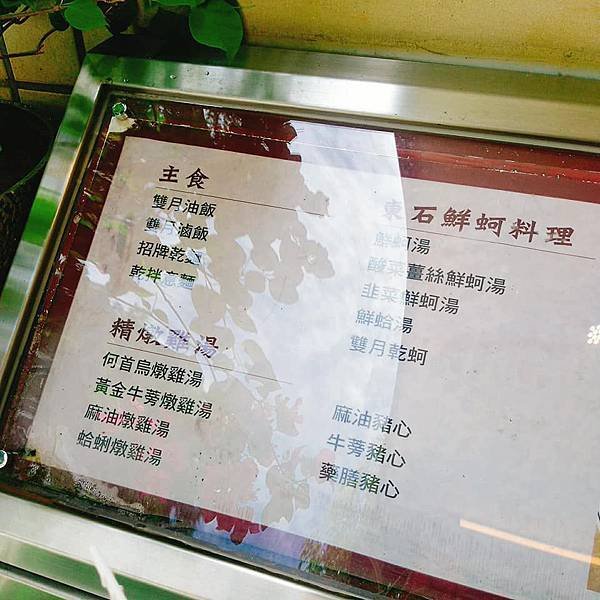 主食
雙月油飯
雙月滷飯
招牌乾麵
乾拌意麵
精燉雞湯
何首烏燉雞湯
黃金牛蒡燉雞湯
麻油燉雞湯
蛤蜊燉雞湯
東石鮮蚵料理
鮮蚵湯
酸菜薑絲鮮蚵湯
韭菜鮮蚵湯
鮮蛤湯
雙月乾蚵
麻油豬心
牛蒡豬心
藥膳豬心